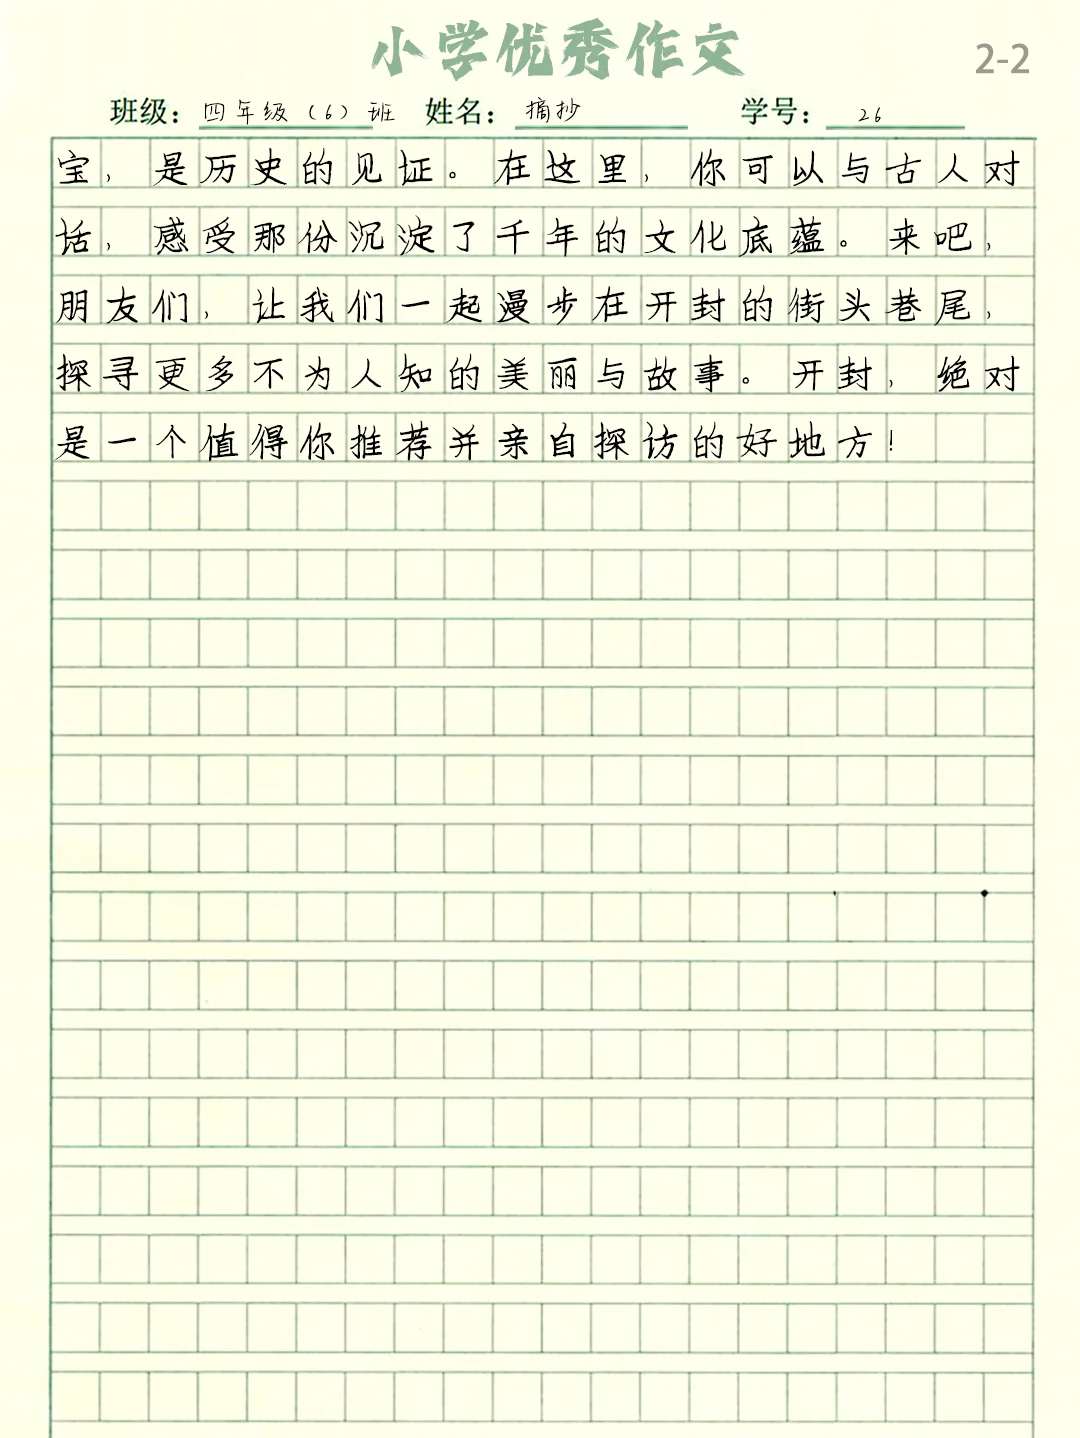 小学优秀作文
2-2
班级：四年级（6）班 姓名：摘抄 学号：26
宝，是历史的见证。在这里，你可以与古人对
话，感受那份沉淀了千年的文化底蕴。来吧，
朋友们，让我们一起漫步在开封的街头巷尾，
探寻更多不为人知的美丽与故事。开封，绝对
是一个值得你推荐并亲自探访的好地方！